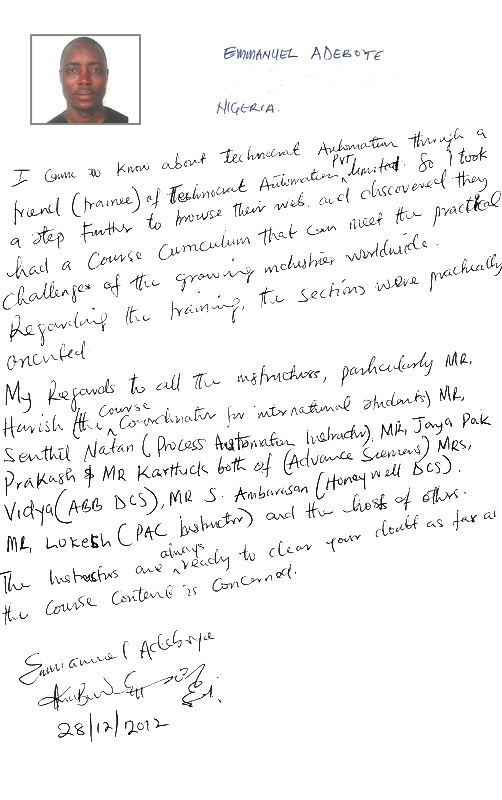 EMMANUEL ADEBOYE
NIGERIA.
I came to know about Technocrat Automation through a
friend (trainee) of Technocrat Automation PVT limited. So I took
a step further to browse their web. and discovered they
had a Course Curriculum that can meet the practical
challenges of the growing industries worldwide.
Regarding the training, the sections were practically
oriented
My Regards to all the instructors, particularly MR.
Harish (the Course Co-ordinator for international students) MR,
Senthil Natan (Process Automation Instructor), MR, Jaya Pak
Prakash & MR Karthick both of (Advance Siemens) MRS,
Vidya (ABB DCS), MR S. Ambarasan (Honeywell DCS).
MR, LOKESH (PAC Instructor) and the host of others.
The Instructors are always ready to clear your doubt as far as
the course content is concerned.
Emmanuel Adeboye
28/12/2012